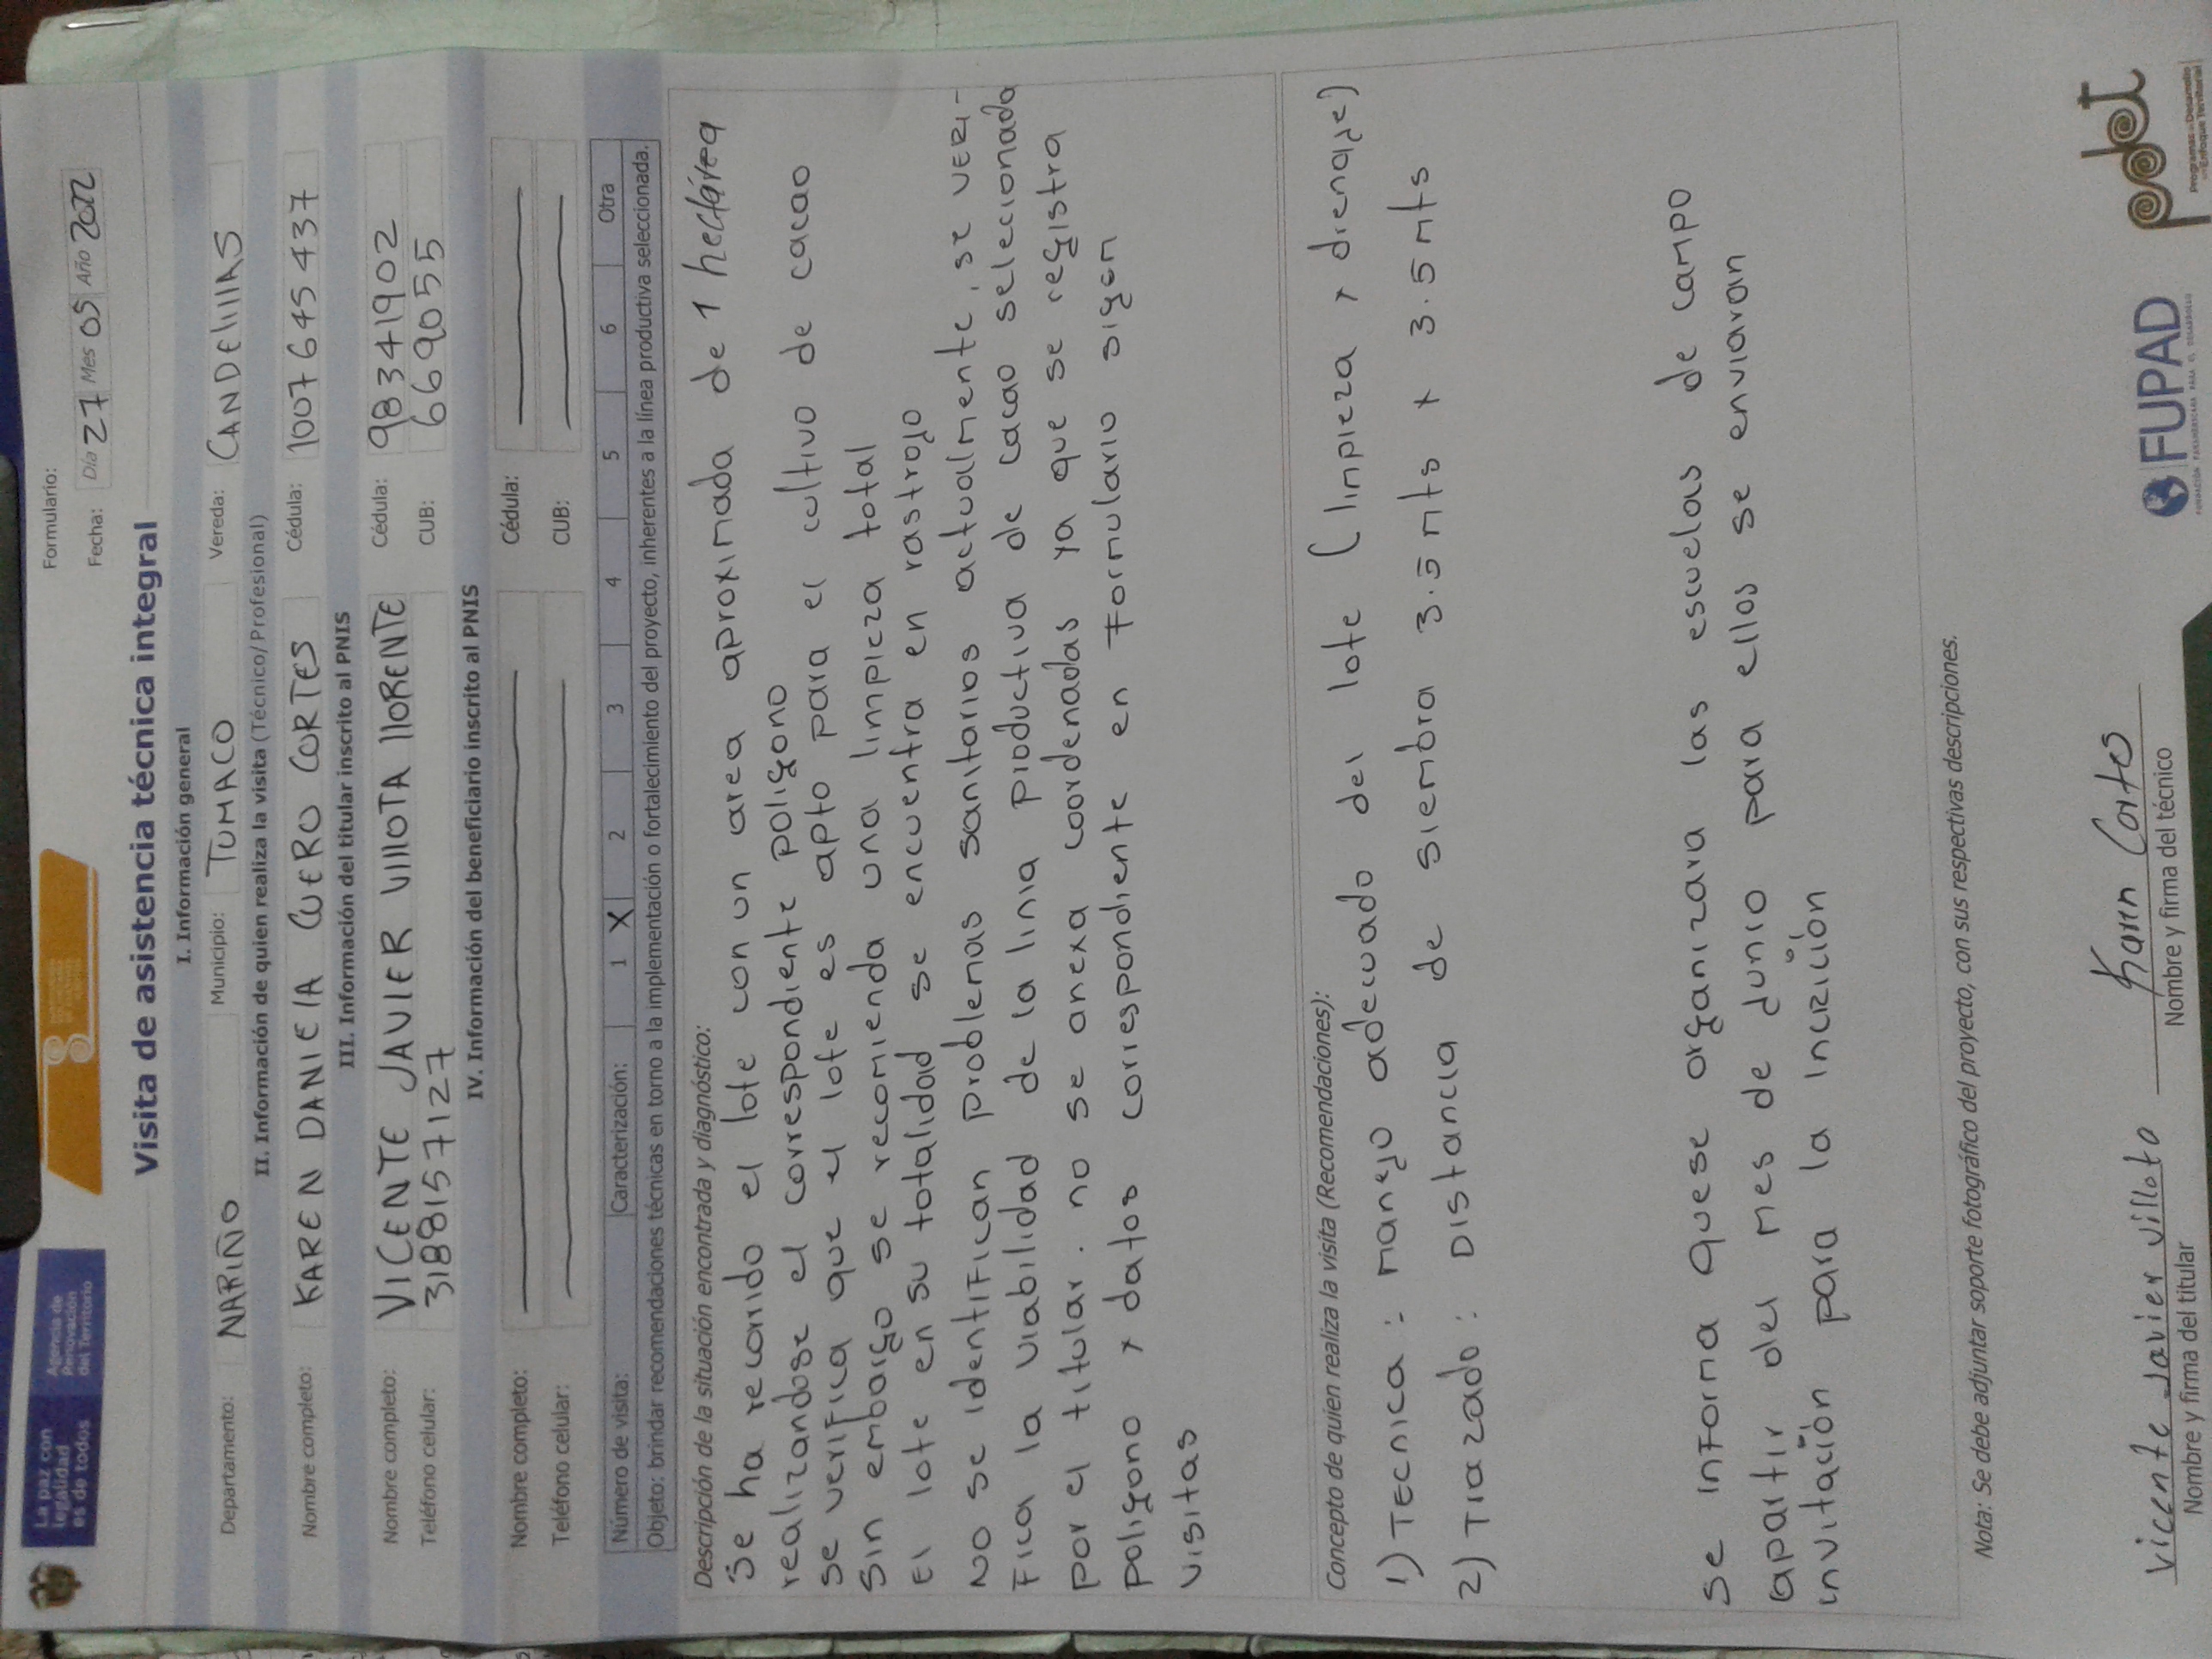 La paz con
legalidad
es de todos
Agencia de
Renovación
del Territorio
Formulario:
Fecha: Día 27 Mes 05 Año 2022
Visita de asistencia técnica integral
I. Información general
Departamento: NARIÑO Municipio: TUMACO Vereda: CANDElillAS
II. Información de quien realiza la visita (Técnico/Profesional)
Nombre completo: KAREN DANIElA CUERO CORTES Cédula: 1007645437
III. Información del titular inscrito al PNIS
Nombre completo: VICENTE JAVIER VIllOTA llORENTE Cédula: 98341902
Teléfono celular: 3188157127 CUB: 669055
IV. Información del beneficiario inscrito al PNIS
Nombre completo: Cédula:
Teléfono celular: CUB:
Número de visita: Caracterización: 1 X 2 3 4 5 6 Otra
Objeto: brindar recomendaciones técnicas en torno a la implementación o fortalecimiento del proyecto, inherentes a la línea productiva seleccionada.
Descripción de la situación encontrada y diagnóstico:
Se ha recorrido el lote con un area aproximada de 1 hectárea
realizandose el correspondiente poligono
se verifica que el lote es apto para el cultivo de cacao
sin embargo se recomienda una limpieza total
El lote en su totalidad se encuentra en rastrojo
No se identifican problemas sanitarios actualmente, se veri-
fica la viabilidad de la linia productiva de cacao selecionada
por el titular. no se anexa coordenadas ya que se registra
poligono y datos correspondiente en formulario sigen
visitas
Concepto de quien realiza la visita (Recomendaciones):
1) Tecnica: manejo adecuado del lote (limpieza y drenaje)
2) Trazado: Distancia de siembra 3.5 mts x 3.5 mts
se informa quese organizara las escuelas de campo
apartir del mes de Junio para ellos se enviaran
invitación para la inczición
Nota: Se debe adjuntar soporte fotográfico del proyecto, con sus respectivas descripciones.
Vicente Javier Villota
Nombre y firma del titular
Karen Cortes
Nombre y firma del técnico
FUPAD
FUNDACIÓN PANAMERICANA PARA EL DESARROLLO
pdet
Programas de Desarrollo
con Enfoque Territorial